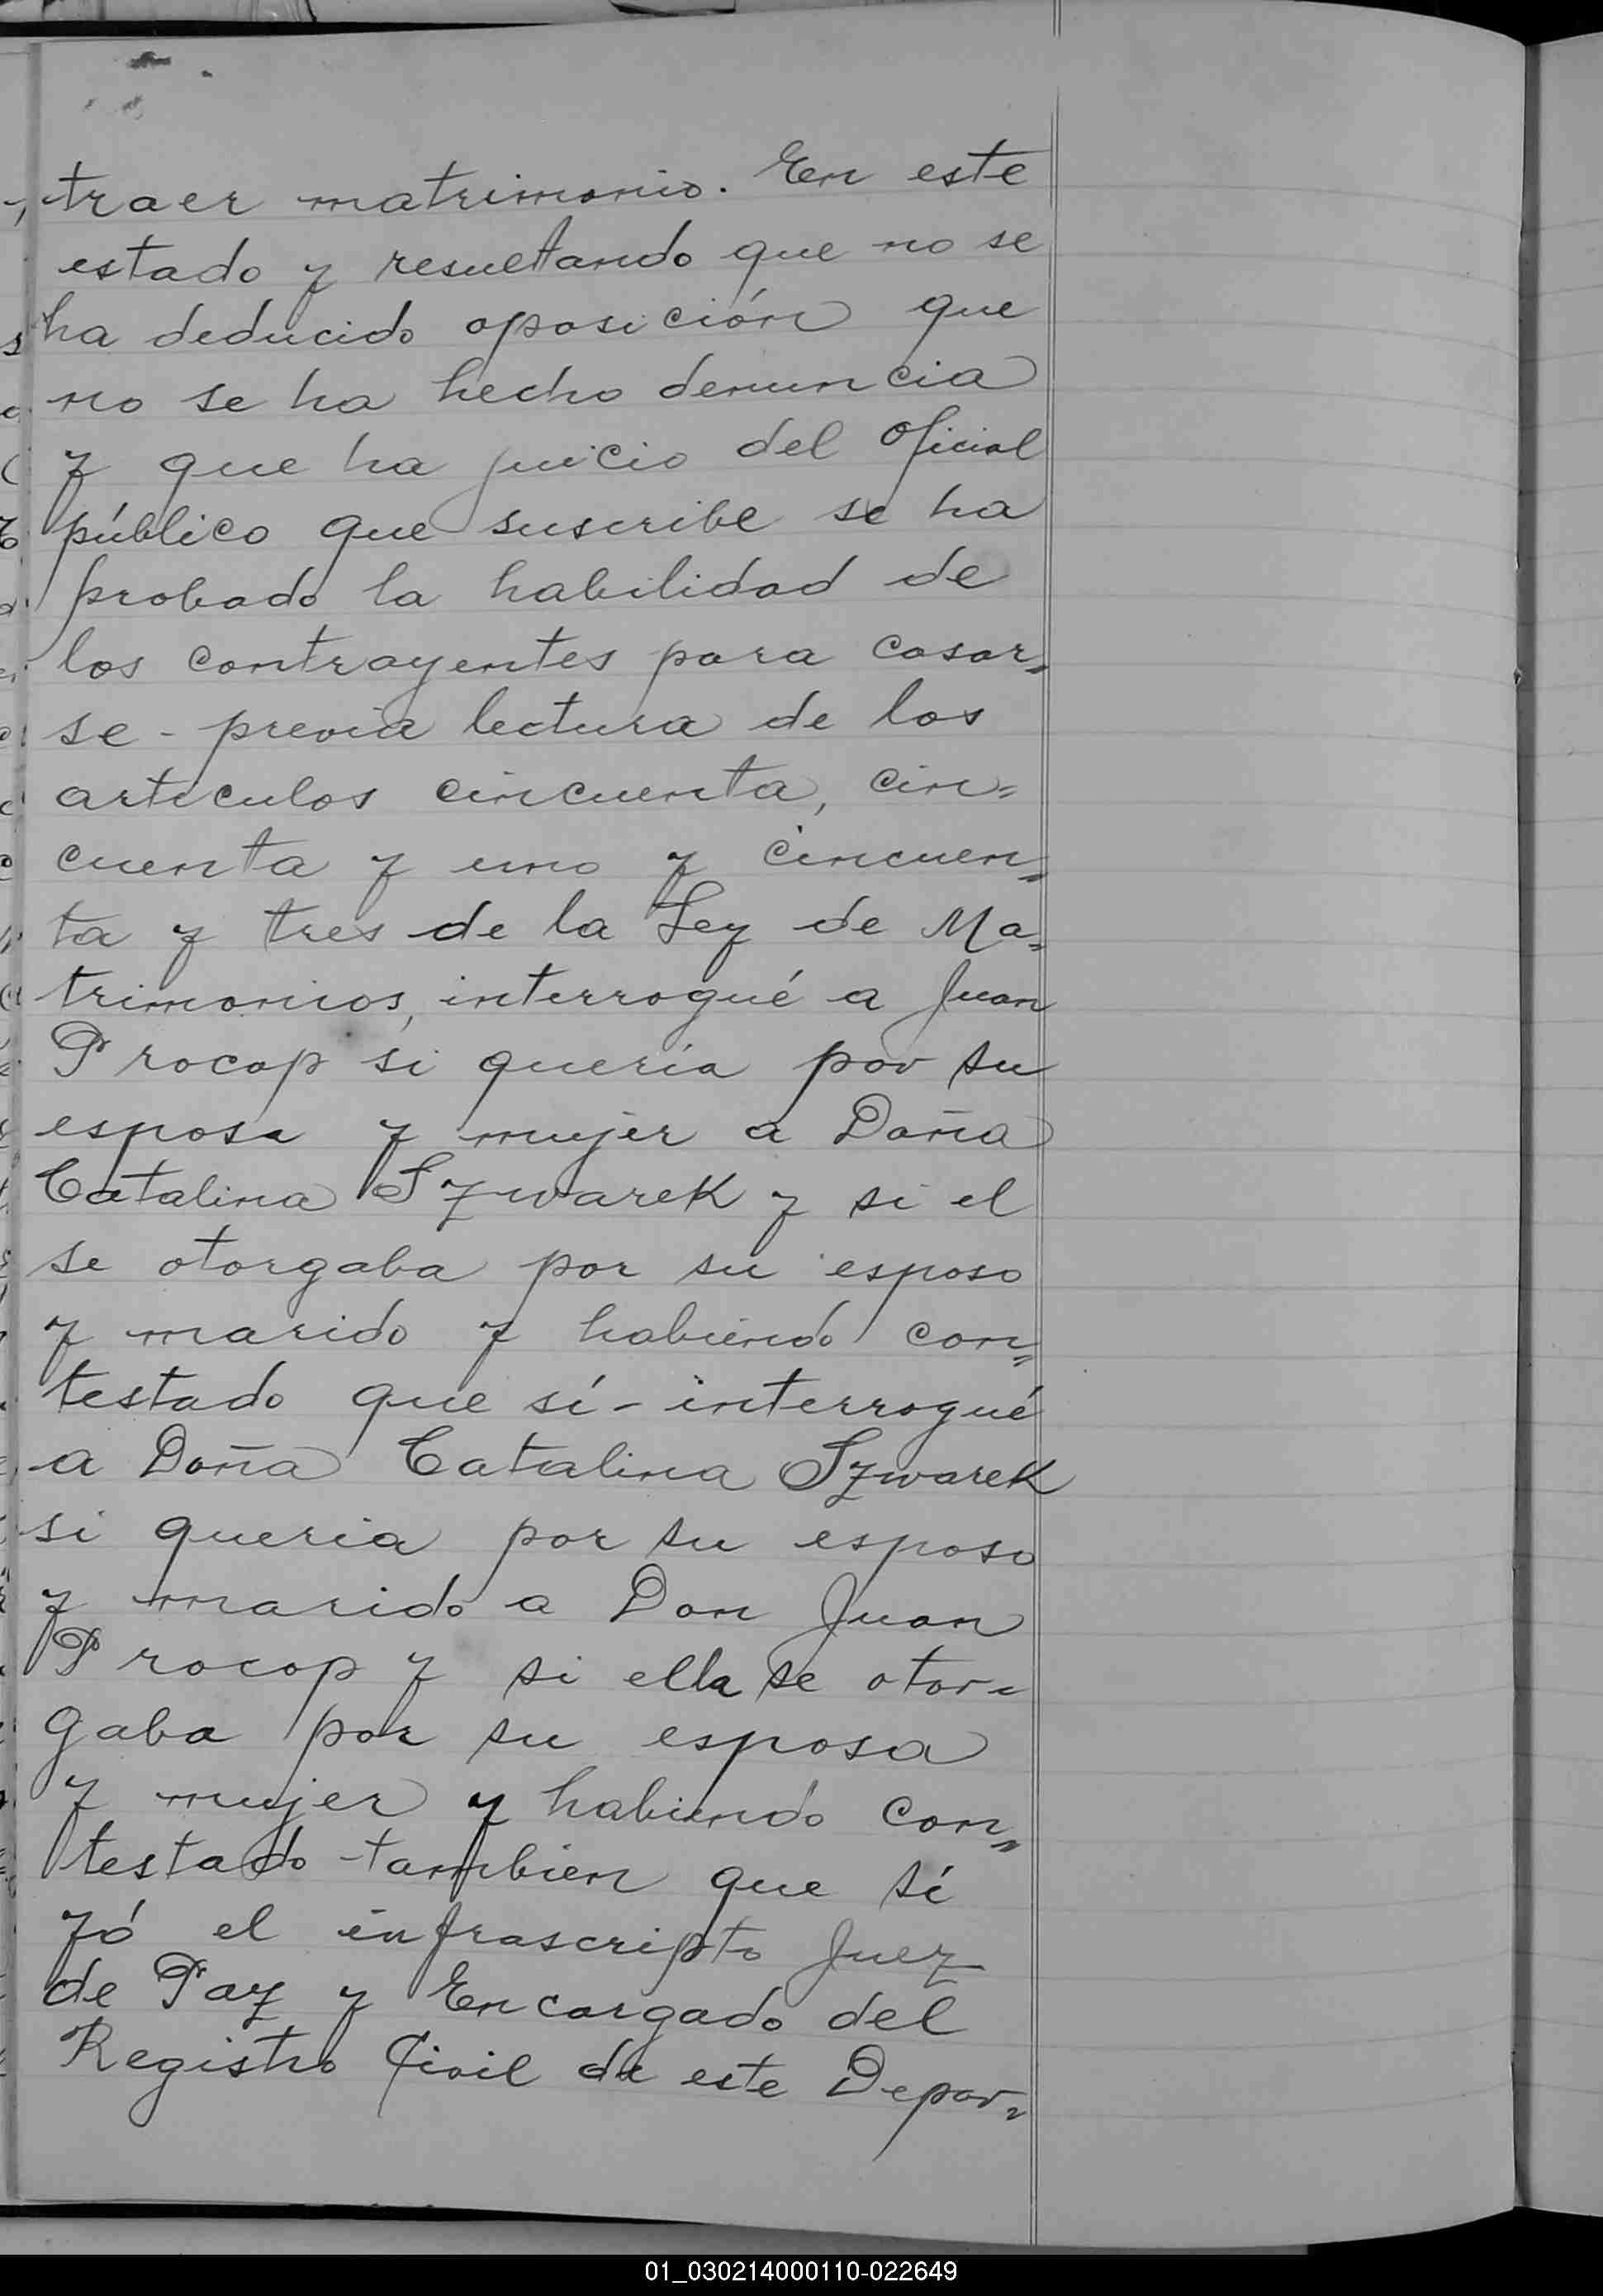 traer matrimonio. En este
estado y resultando que no se
ha deducido oposición que
no se ha hecho denuncia
y que ha juicio del Oficial
público que suscribe se ha
probado la habilidad de
los contrayentes para casar=
se - previa lectura de los
artículos cincuenta, cin=
cuenta y uno y cincuen=
ta y tres de la Ley de Ma=
trimonios, interrogué a Juan
Procop si quería por su
esposa y mujer a Doña
Catalina Szwarek y si el
se otorgaba por su esposo
y marido y habiendo con=
testado que sí - interrogué
a Doña Catalina Szwarek
si queria por su esposo
y marido a Don Juan
Procop y si ella se otor=
gaba por su esposa
y mujer y habiendo con=
testado tambien que sí
yó el infrascripto Juez
de Paz y Encargado del
Registro Civil de este Depar=
01_030214000110-022649